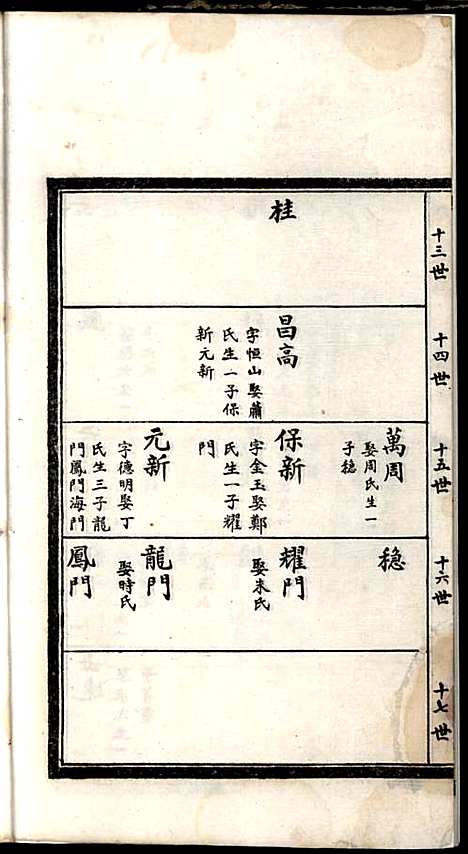 十三世
桂
十四世
昌高
字恒山娶蕭
氏生一子保
新元新
十五世
萬周
娶周氏生一
子稳
保新
字金玉娶鄭
氏生一子耀
門
元新
字德明娶丁
氏生三子龍
門鳳門海門
十六世
稳
耀門
娶朱氏
龍門
娶時氏
鳳門
十七世